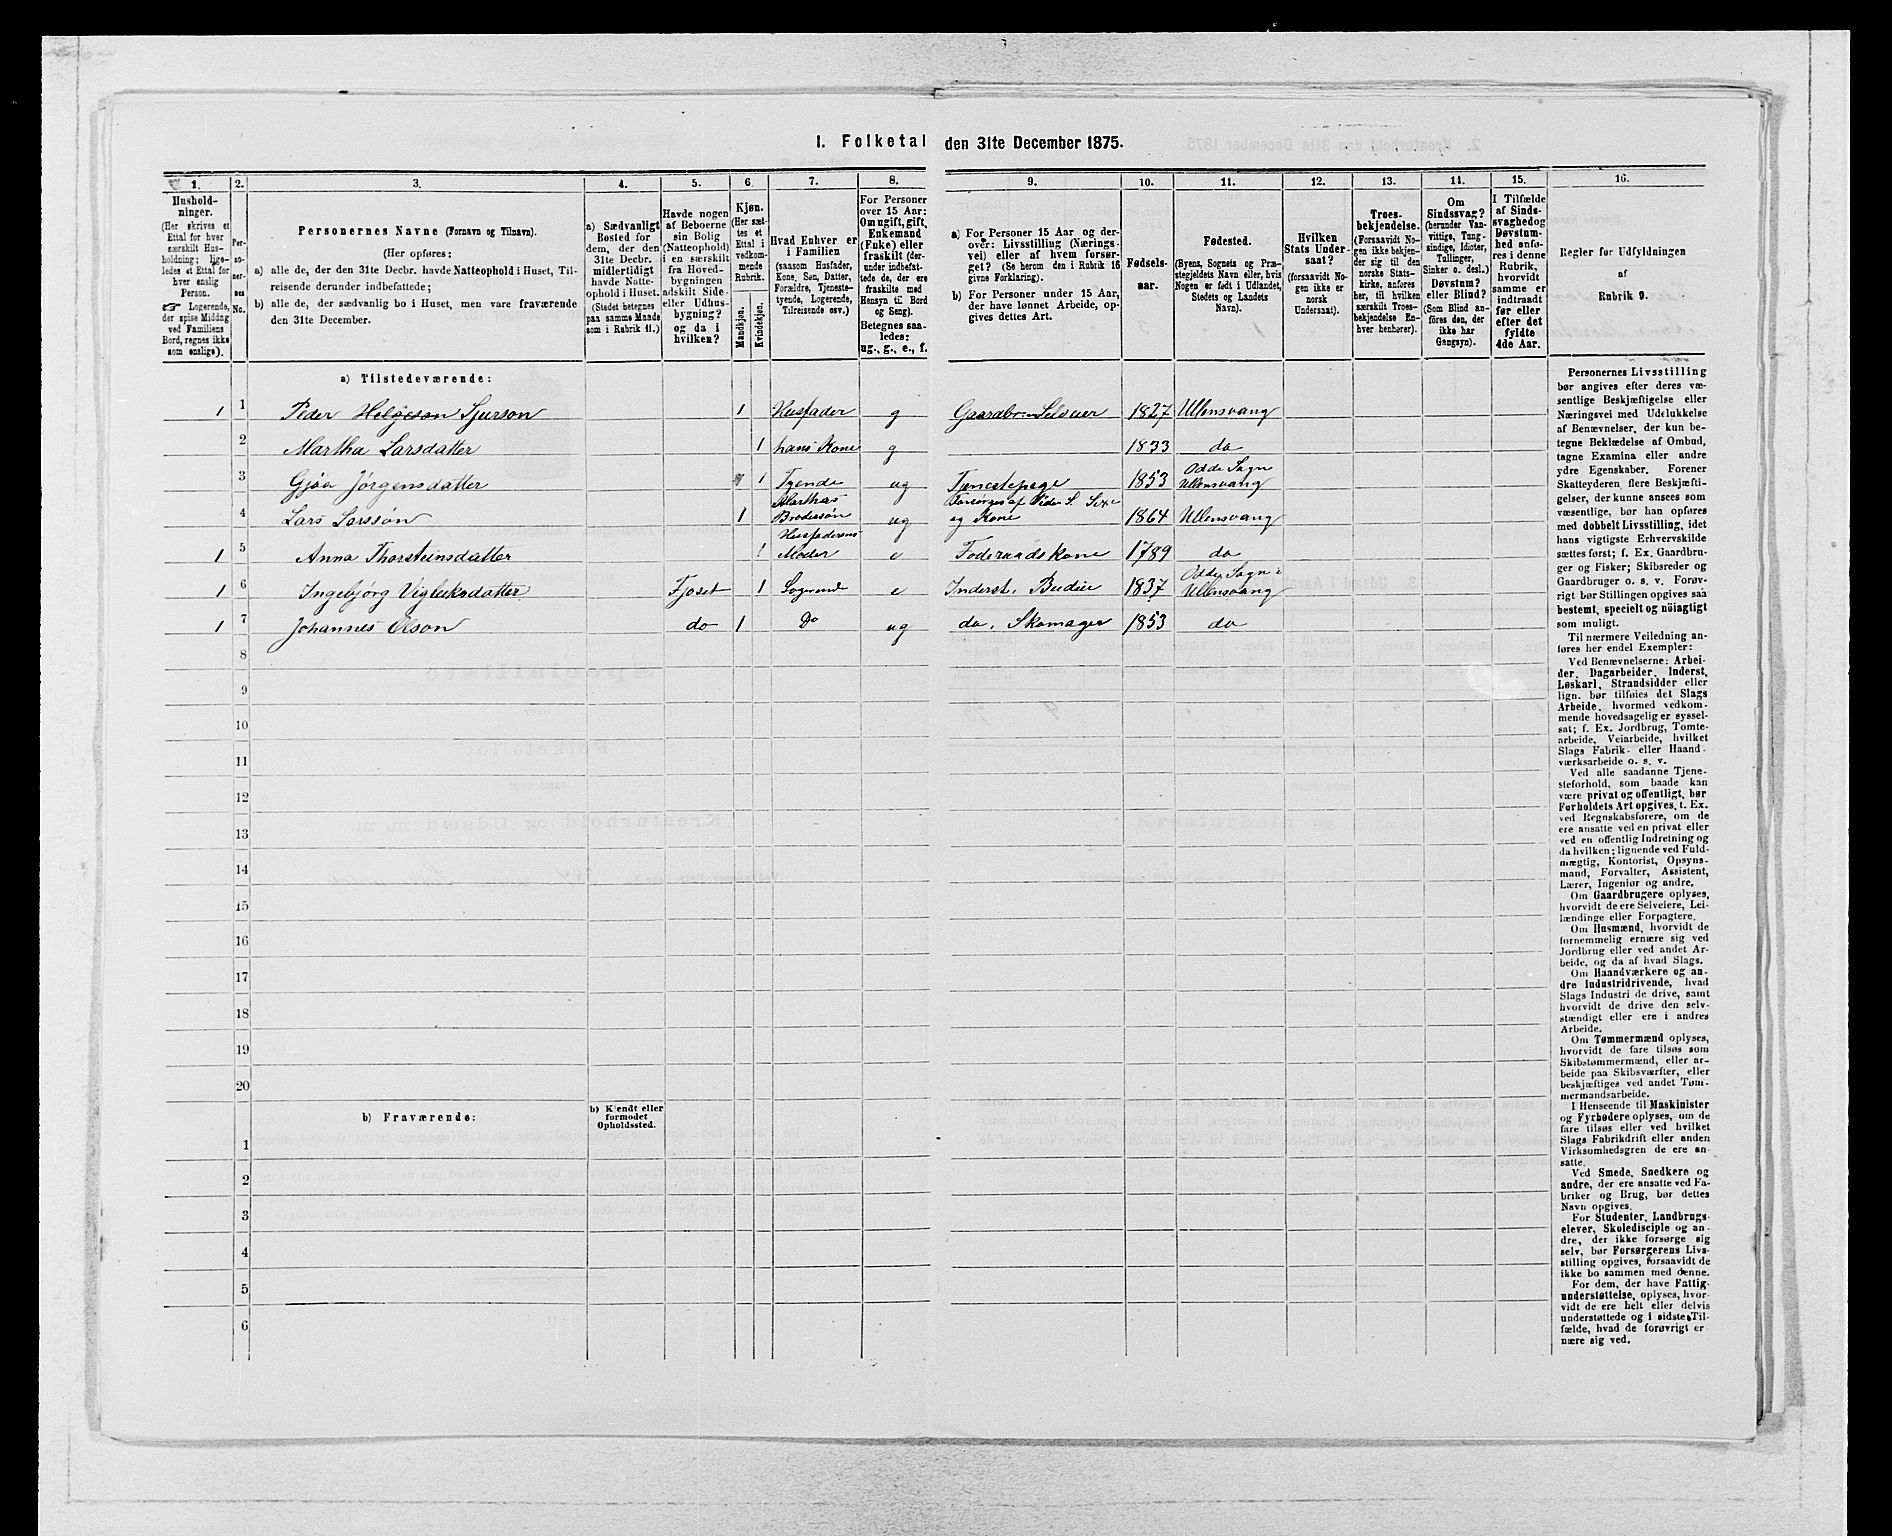 1. Folketal den 31te December 1875.
1.
2.
3.
4.
5.
6.
7.
8.
9.
10.
11.
12.
13.
14.
15.
16.
Hushold-
ninger.
(Her skrives et
Ettal for hver
særskilt Hus-
holdning; lige-
ledes et Ettal for
hver enslig
Person.
☞ Logerende,
der spise Middag
ved Familiens
Bord, regnes ikke
som enslige).
Per-
so-
ner-
nes
No.
Personernes Navne (Fornavn og Tilnavn).
(Her opføres:
a) alle de, der den 31te Decbr. havde Natteophold i Huset, Til-
reisende derunder indbefattede;
b) alle de, der sædvanlig bo i Huset, men vare fraværende
den 31te December.
a) Sædvanligt
Bosted for
dem, der den
31te Decbr.
midlertidigt
havde Natte-
ophold i Huset.
(Stedet betegnes
paa samme Maade
som i Rubrik 11.)
Havde nogen
af Beboerne
sin Bolig
(Natteophold)
i en særskilt
fra Hoved-
bygningen
adskilt Side-
eller Udhus-
bygning?
og da i
hvilken?
Kjøn.
(Her sæt-
tes et
Ettal i
vedkom-
mende
Rubrik.
Mandkjøn.
Kvindekjøn.
Hvad Enhver er
i Familien
(saasom Husfader,
Kone, Søn, Datter,
Forældre, Tjeneste-
tyende, Logerende,
Tilreisende osv.)
For Personer
over 15 Aar:
Om ugift, gift,
Enkemand
(Enke) eller
fraskilt (der-
under indbefat-
tede de, der ere
fraskilte med
Hensyn til Bord
og Seng).
Betegnes saa-
ledes:
ug., g., e., f.
a) For Personer 15 Aar og der-
over: Livsstilling (Nærings-
vei) eller af hvem forsør-
get? (Se herom den i Rubrik 16
givne Forklaring).
b) For Personer under 15 Aar,
der have lønnet Arbeide, op-
gives dettes Art.
Fødsels-
aar.
Fødested.
(Byens, Sognets og Præ-
stegjeldets Navn eller, hvis
Nogen er født i Udlandet,
Stedets og Landets
Navn).
Hvilken
Stats Under-
saat?
(forsaavidt No-
gen ikke er
norsk
Undersaat).
Troes-
bekjendelse.
(Forsaavidt No-
gen ikke bekjen-
der sig til den
norske Stats-
kirke, anføres
her, til hvilken
særskilt Troes-
bekjendelse En-
hver henhører).
Om
Sindssvag?
(herunder Van-
vittige, Tung-
sindige, Idioter,
Tullinger,
Sinker o. desl.)
Døvstum?
eller Blind?
(Som Blind an-
føres den, der
ikke har
Gangsyn).
I Tilfælde
af Sinds-
svaghed og
Døvstum-
hed anfø-
res i denne
Rubrik,
hvorvidt
samme er
indtraadt
før eller
efter det
fyldte
4de Aar.
Regler før Udfyldningen
af
Rubrik 9.
a) Tilstedeværende:
1 1 Peder Helgeson Sjurson 1 Husfader g Gaardbr. Selveier 1827 Ullensvang
2 Martha Larsdatter 1 hans Kone g 1833 do
3 Gjøa Jørgensdatter 1 Tyende ug Tjenestepige 1853 Odde Sogn Ullensvang
4 Lars Larssøn 1 Marthas Brodersøn ug Forsørges af Peder S. og Kone 1864 Ullensvang
1 5 Anna Thorsteinsdatter 1 Husfaderens Moder e Føderaadskone 1789 do
1 6 Ingebjørg Vigleiksdatter Fjøset 1 Logerende e Inderst, Budeie 1837 Odde Sogn Ullensvang
1 7 Johannes Olson do 1 Do ug do, Skomager 1853 do
8
9
10
11
12
13
14
15
16
17
18
19
20
b) Fraværende:
b) Kjendt eller
formodet
Opholdssted.
1
2
3
4
5
6
Personernes Livsstilling
bør angives efter deres væ-
sentlige Beskjæftigelse eller
Næringsvei med Udelukkelse
af Benævnelser, der kun be-
tegne Beklædelse af Ombud,
tagne Examina eller andre
ydre Egenskaber. Forener
Skatteyderen flere Beskjæfti-
gelser, der kunne ansees som
væsentlige, bør han opføres
med dobbelt Livsstilling, idet
hans vigtigste Erhvervskilde
sættes først; f. Ex. Gaardbru-
ger og Fisker; Skibsreder og
Gaardbruger o. s. v. Forøv-
rigt bør Stillingen opgives saa
bestemt, specielt og nøiagtigt
som muligt.
Til nærmere Veiledning an-
føres her endel Exempler:
Ved Benævnelserne: Arbei-
der, Dagarbeider, Inderst,
Løskarl, Strandsidder eller
lign. bør tilføies det Slags
Arbeide, hvormed vedkom-
mende hovedsagelig er syssel-
sat; f. Ex. Jordbrug, Tomte-
arbeide, Veiarbeide, hvilket
Slags Fabrik- eller Haand-
værksarbeide o. s. v.
Ved alle saadanne Tjene-
steforhold, som baade kan
være privat og offentligt, bør
Forholdets Art opgives, t. Ex.
ved Regnskabsførere, om de
ere ansatte ved en privat eller
ved en offentlig Indretning og
da hvilken; lignende ved Fuld-
mægtig, Kontorist, Opsyns-
mand, Forvalter, Assistent,
Lærer, Ingeniør og andre.
Om Gaardbrugere oplyses,
hvorvidt de ere Selveiere, Lei-
lændinge eller Forpagtere.
Om Husmænd, hvorvidt de
fornemmelig ernære sig ved
Jordbrug eller ved andet Ar-
beide, og da af hvad Slags.
Om Haandværkere og an-
dre Industridrivende, hvad
Slags Industri de drive, samt
hvorvidt de drive den selv-
stændigt eller ere i andres
Arbeide.
Om Tømmermænd oplyses,
hvorvidt de fare tilsøs som
Skibstømmermænd, eller ar-
beide paa Skibsværfter, eller
beskjæftiges ved andet Tøm-
mermandsarbeide.
I Henseende til Maskinister
og Fyrbødere oplyses, om de
fare tilsøs eller ved hvilket
Slags Fabrikdrift eller anden
Virksomhedsgren de ere an-
satte.
Ved Smede, Snedkere og
andre, der ere ansatte ved Fa-
briker og Brug, bør dettes
Navn opgives.
For Studenter, Landbrugs-
elever, Skoledisciple og an-
dre, der ikke forsørge sig
selv, bør Forsørgerens Livs-
stilling opgives, forsaavidt de
ikke bo sammen med denne.
For dem, der have Fattig-
understøttelse, oplyses, hvor-
vidt de ere helt eller delvis
understøttede og i sidste Til-
fælde, hvad de forøvrigt er-
nære sig ved.